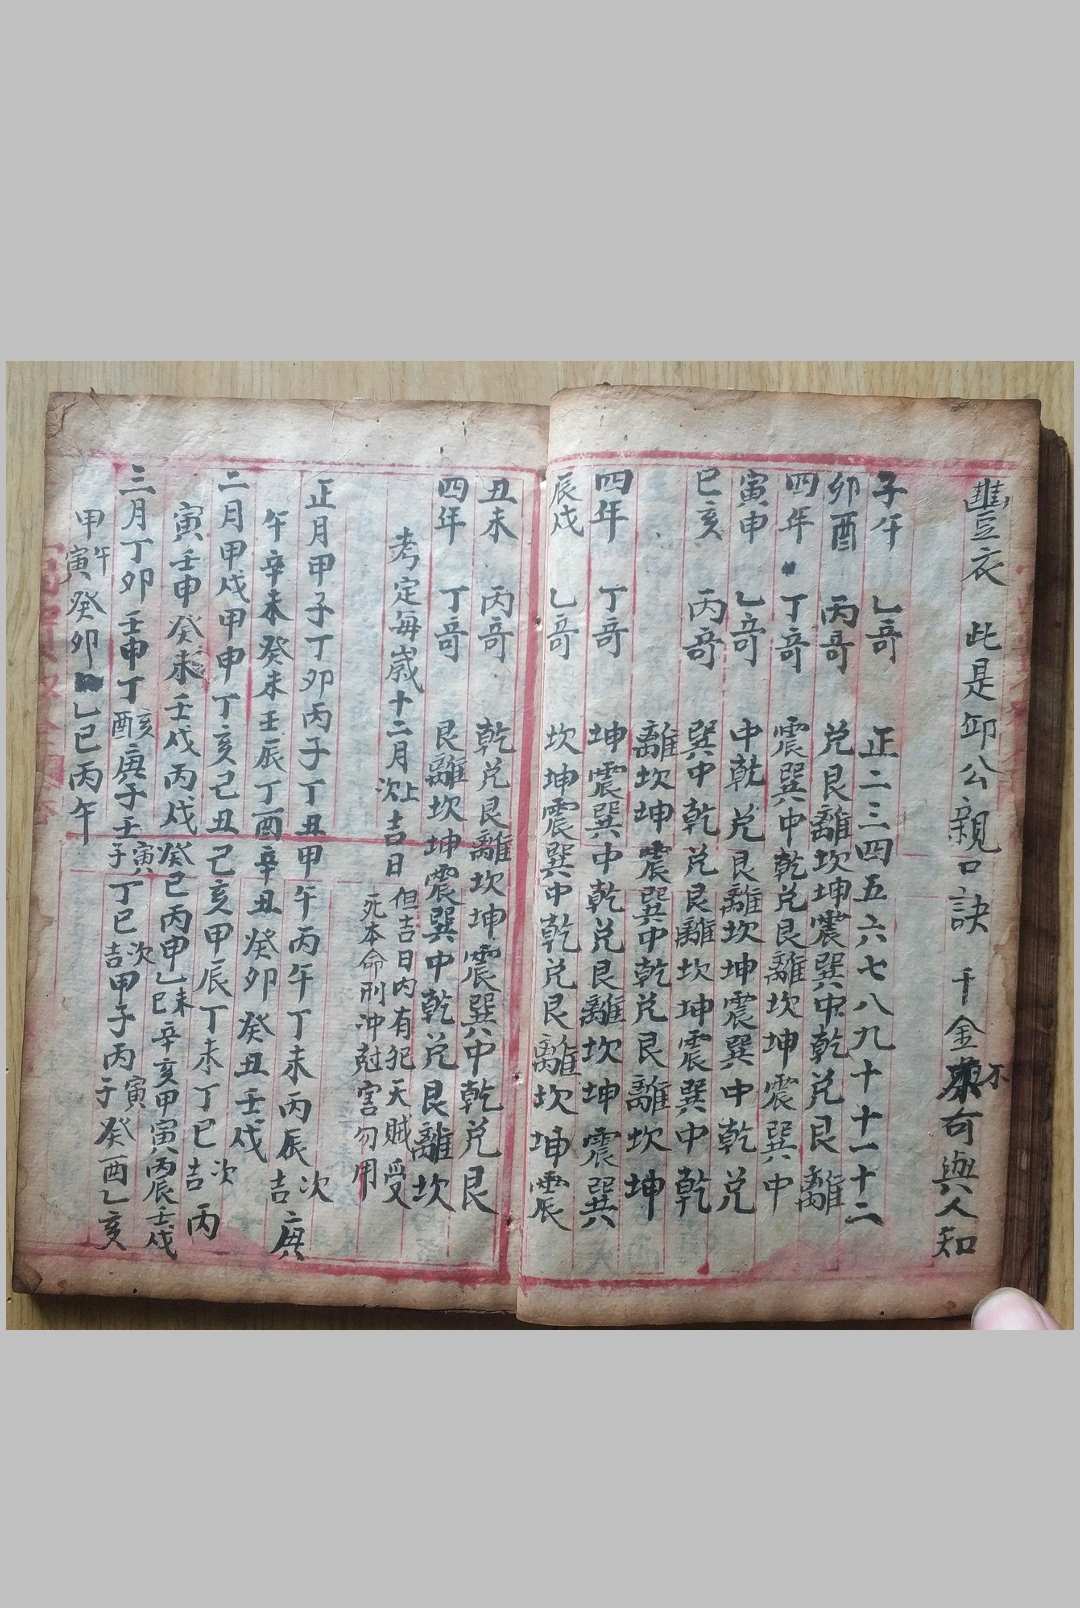 豊衣 此是邱公親口訣 千金不可與人知
正二三四五六七八九十十一十二
子午 乙奇
卯酉 丙奇 兑艮離坎坤震巽中乾兑艮離
四年 丁奇 震巽中乾兑艮離坎坤震巽中
寅申 乙奇 中乾兑艮離坎坤震巽中乾兑
巳亥 丙奇 巽中乾兑艮離坎坤震巽中乾
離坎坤震巽中乾兑艮離坎坤
四年 丁奇 坤震巽中乾兑艮離坎坤震巽
辰戌 乙奇 坎坤震巽中乾兑艮離坎坤震
丑未 丙奇 乾兑艮離坎坤震巽中乾兑艮
四年 丁奇 艮離坎坤震巽中乾兑艮離坎
考定每歲十二月上次吉日 但吉日内有犯天賊受
死本命刑冲尅害勿用
正月甲子丁卯丙子丁丑甲午丙午丁未丙辰次吉庚
午辛未癸未壬辰丁酉辛丑癸卯癸丑壬戌
二月甲戌甲申丁亥己丑己亥甲辰丁未丁巳次吉丙
寅壬申癸未壬戌丙戌癸巳丙申乙未巳辛亥甲寅丙辰壬戌
三月丁卯壬申丁亥酉庚子壬寅子丁巳次吉甲子丙寅子癸酉乙亥
甲午寅癸卯乙巳丙午